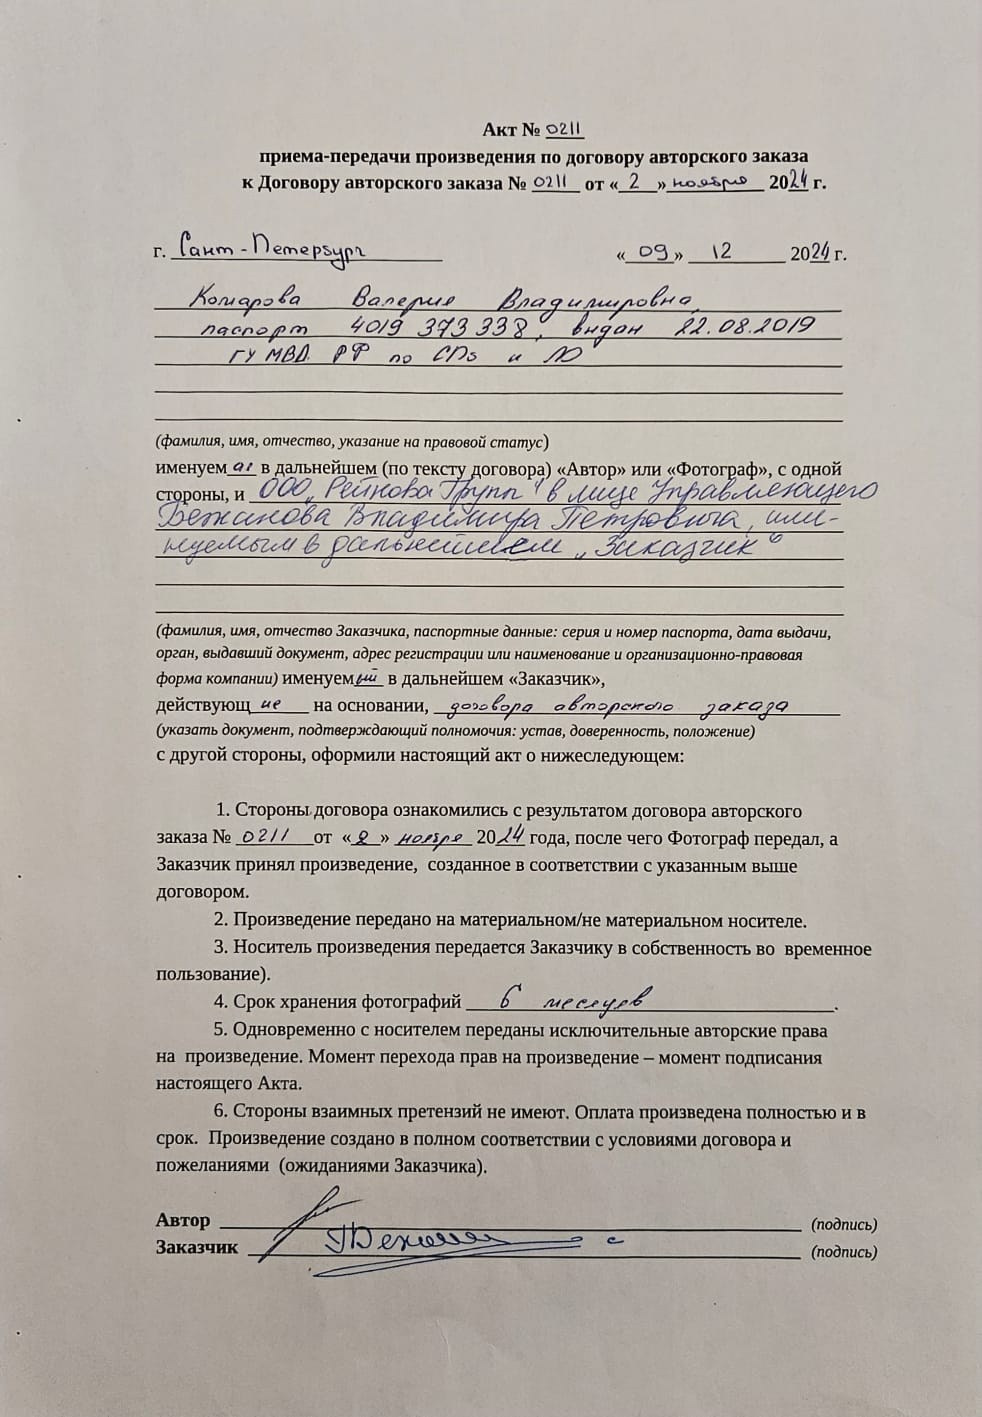 Акт № 0211
приема-передачи произведения по договору авторского заказа
к Договору авторского заказа № 0211 от «2» ноября 2024 г.
г. Санкт-Петербург «09» 12 2024 г.
Комарова Валерия Владимировна,
паспорт 4019 373338, выдан 22.08.2019
ГУ МВД РФ по СПб и ЛО
(фамилия, имя, отчество, указание на правовой статус)
именуемая в дальнейшем (по тексту договора) «Автор» или «Фотограф», с одной
стороны, и ООО „Рейнова Групп“ в лице Управляющего
Бежанова Владимира Петровича, име-
нуемым в дальнейшем „Заказчик“
(фамилия, имя, отчество Заказчика, паспортные данные: серия и номер паспорта, дата выдачи,
орган, выдавший документ, адрес регистрации или наименование и организационно-правовая
форма компании) именуемый в дальнейшем «Заказчик»,
действующие на основании, договора авторского заказа
(указать документ, подтверждающий полномочия: устав, доверенность, положение)
с другой стороны, оформили настоящий акт о нижеследующем:
1. Стороны договора ознакомились с результатом договора авторского
заказа № 0211 от «2» ноября 2024 года, после чего Фотограф передал, а
Заказчик принял произведение, созданное в соответствии с указанным выше
договором.
2. Произведение передано на материальном/не материальном носителе.
3. Носитель произведения передается Заказчику в собственность во временное
пользование).
4. Срок хранения фотографий 6 месяцев.
5. Одновременно с носителем переданы исключительные авторские права
на произведение. Момент перехода прав на произведение – момент подписания
настоящего Акта.
6. Стороны взаимных претензий не имеют. Оплата произведена полностью и в
срок. Произведение создано в полном соответствии с условиями договора и
пожеланиями (ожиданиями Заказчика).
Автор (подпись)
Заказчик (подпись)